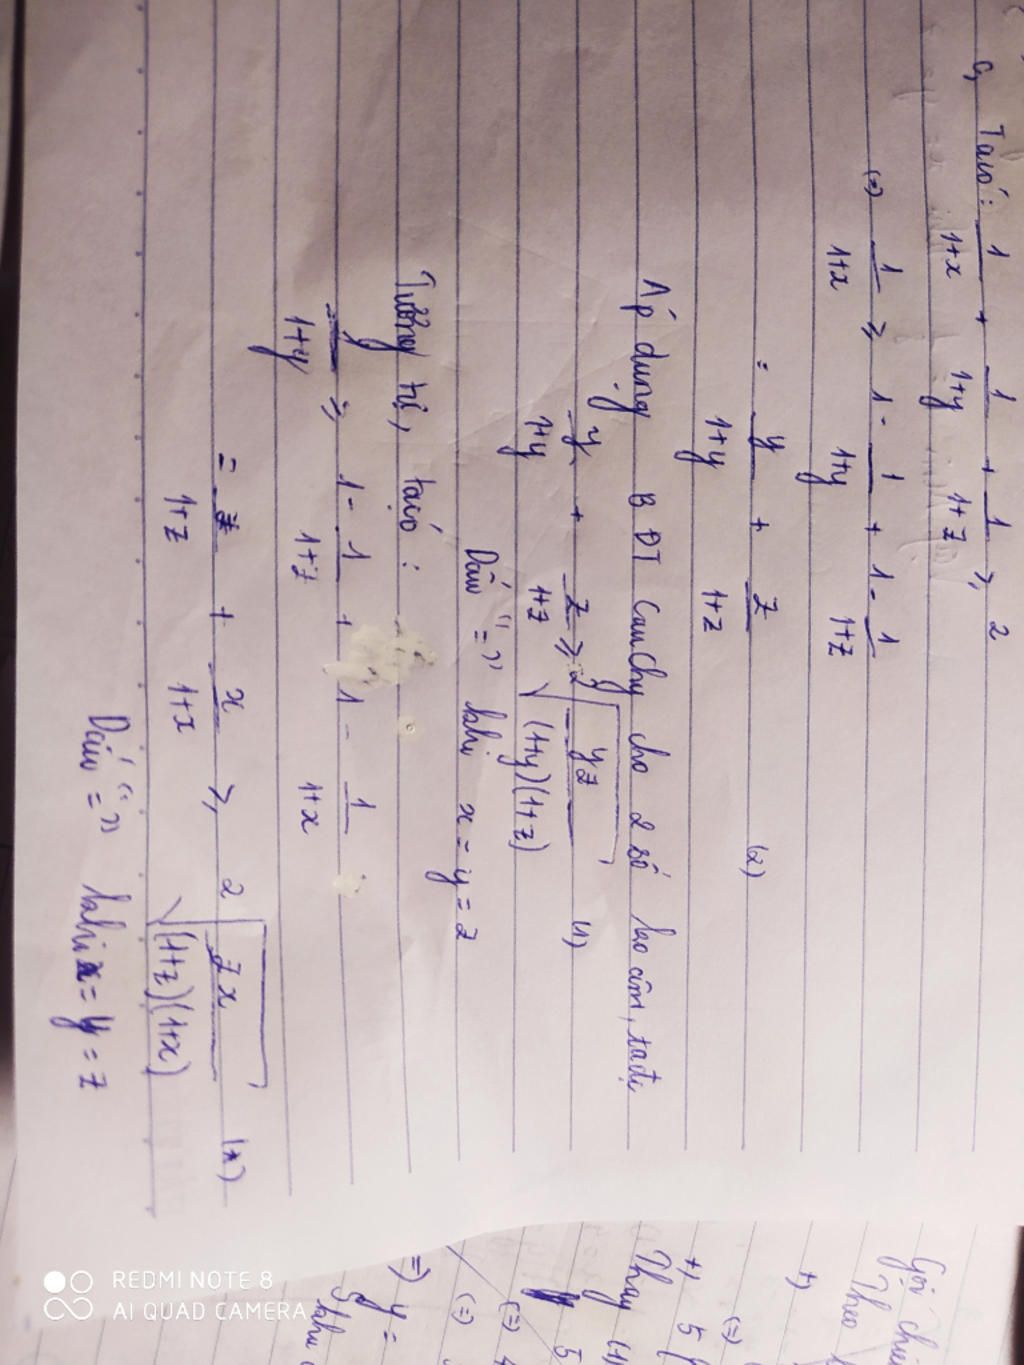 c, Ta có: 1/(1+x) + 1/(1+y) + 1/(1+z) ≥ 2
(=) 1/(1+x) ≥ 1 - 1/(1+y) + 1 - 1/(1+z)
= y/(1+y) + z/(1+z) (2)
Áp dụng BĐT Cauchy cho 2 số ko âm, ta đc
y/(1+y) + z/(1+z) ≥ 2√(yz/((1+y)(1+z))) (1)
Dấu "=" khi x = y = z
Tương tự, ta có:
y/(1+y) ≥ 1 - 1/(1+z) + 1 - 1/(1+x)
= z/(1+z) + x/(1+x) ≥ 2√(zx/((1+z)(1+x))) (*)
Dấu "=" khi x = y = z
Gọi
Theo
+)
(=)
+, 5
Thay (1)
5
(=)
(=)
=) y =
REDMI NOTE 8
AI QUAD CAMERA